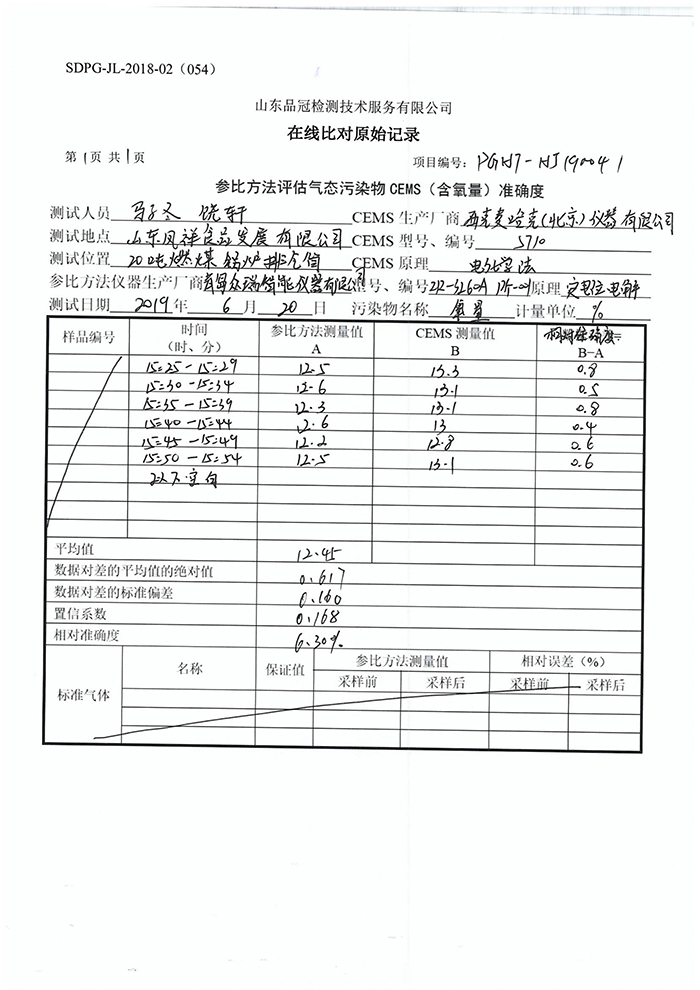 SDPG-JL-2018-02（054）
山东品冠检测技术服务有限公司
在线比对原始记录
第1页 共1页 项目编号：PGHJ-HJ190041
参比方法评估气态污染物CEMS（含氧量）准确度
测试人员 CEMS生产厂商 西克麦哈克(北京)仪器有限公司
测试地点 山东凤祥食品发展有限公司 CEMS型号、编号 S710
测试位置 20吨燃煤锅炉排气筒 CEMS原理 电化学法
参比方法仪器生产厂商 青岛众瑞智能仪器有限公司 型号、编号 原理 定电位电解
测试日期 2019年 6月 20日 污染物名称 氧量 计量单位 %
样品编号 时间（时、分） 参比方法测量值A CEMS测量值B 相对准确度=B-A
15:25-15:29 12.5 13.3 0.8
15:30-15:34 12.6 13.1 0.5
15:35-15:39 12.3 13.1 0.8
15:40-15:44 12.6 13 0.4
15:45-15:49 12.2 12.8 0.6
15:50-15:54 12.5 13.1 0.6
以下空白
平均值 12.45
数据对差的平均值的绝对值 0.617
数据对差的标准偏差 0.160
置信系数 0.168
相对准确度 6.30%
标准气体 名称 保证值 参比方法测量值 相对误差（%）
采样前 采样后 采样前 采样后